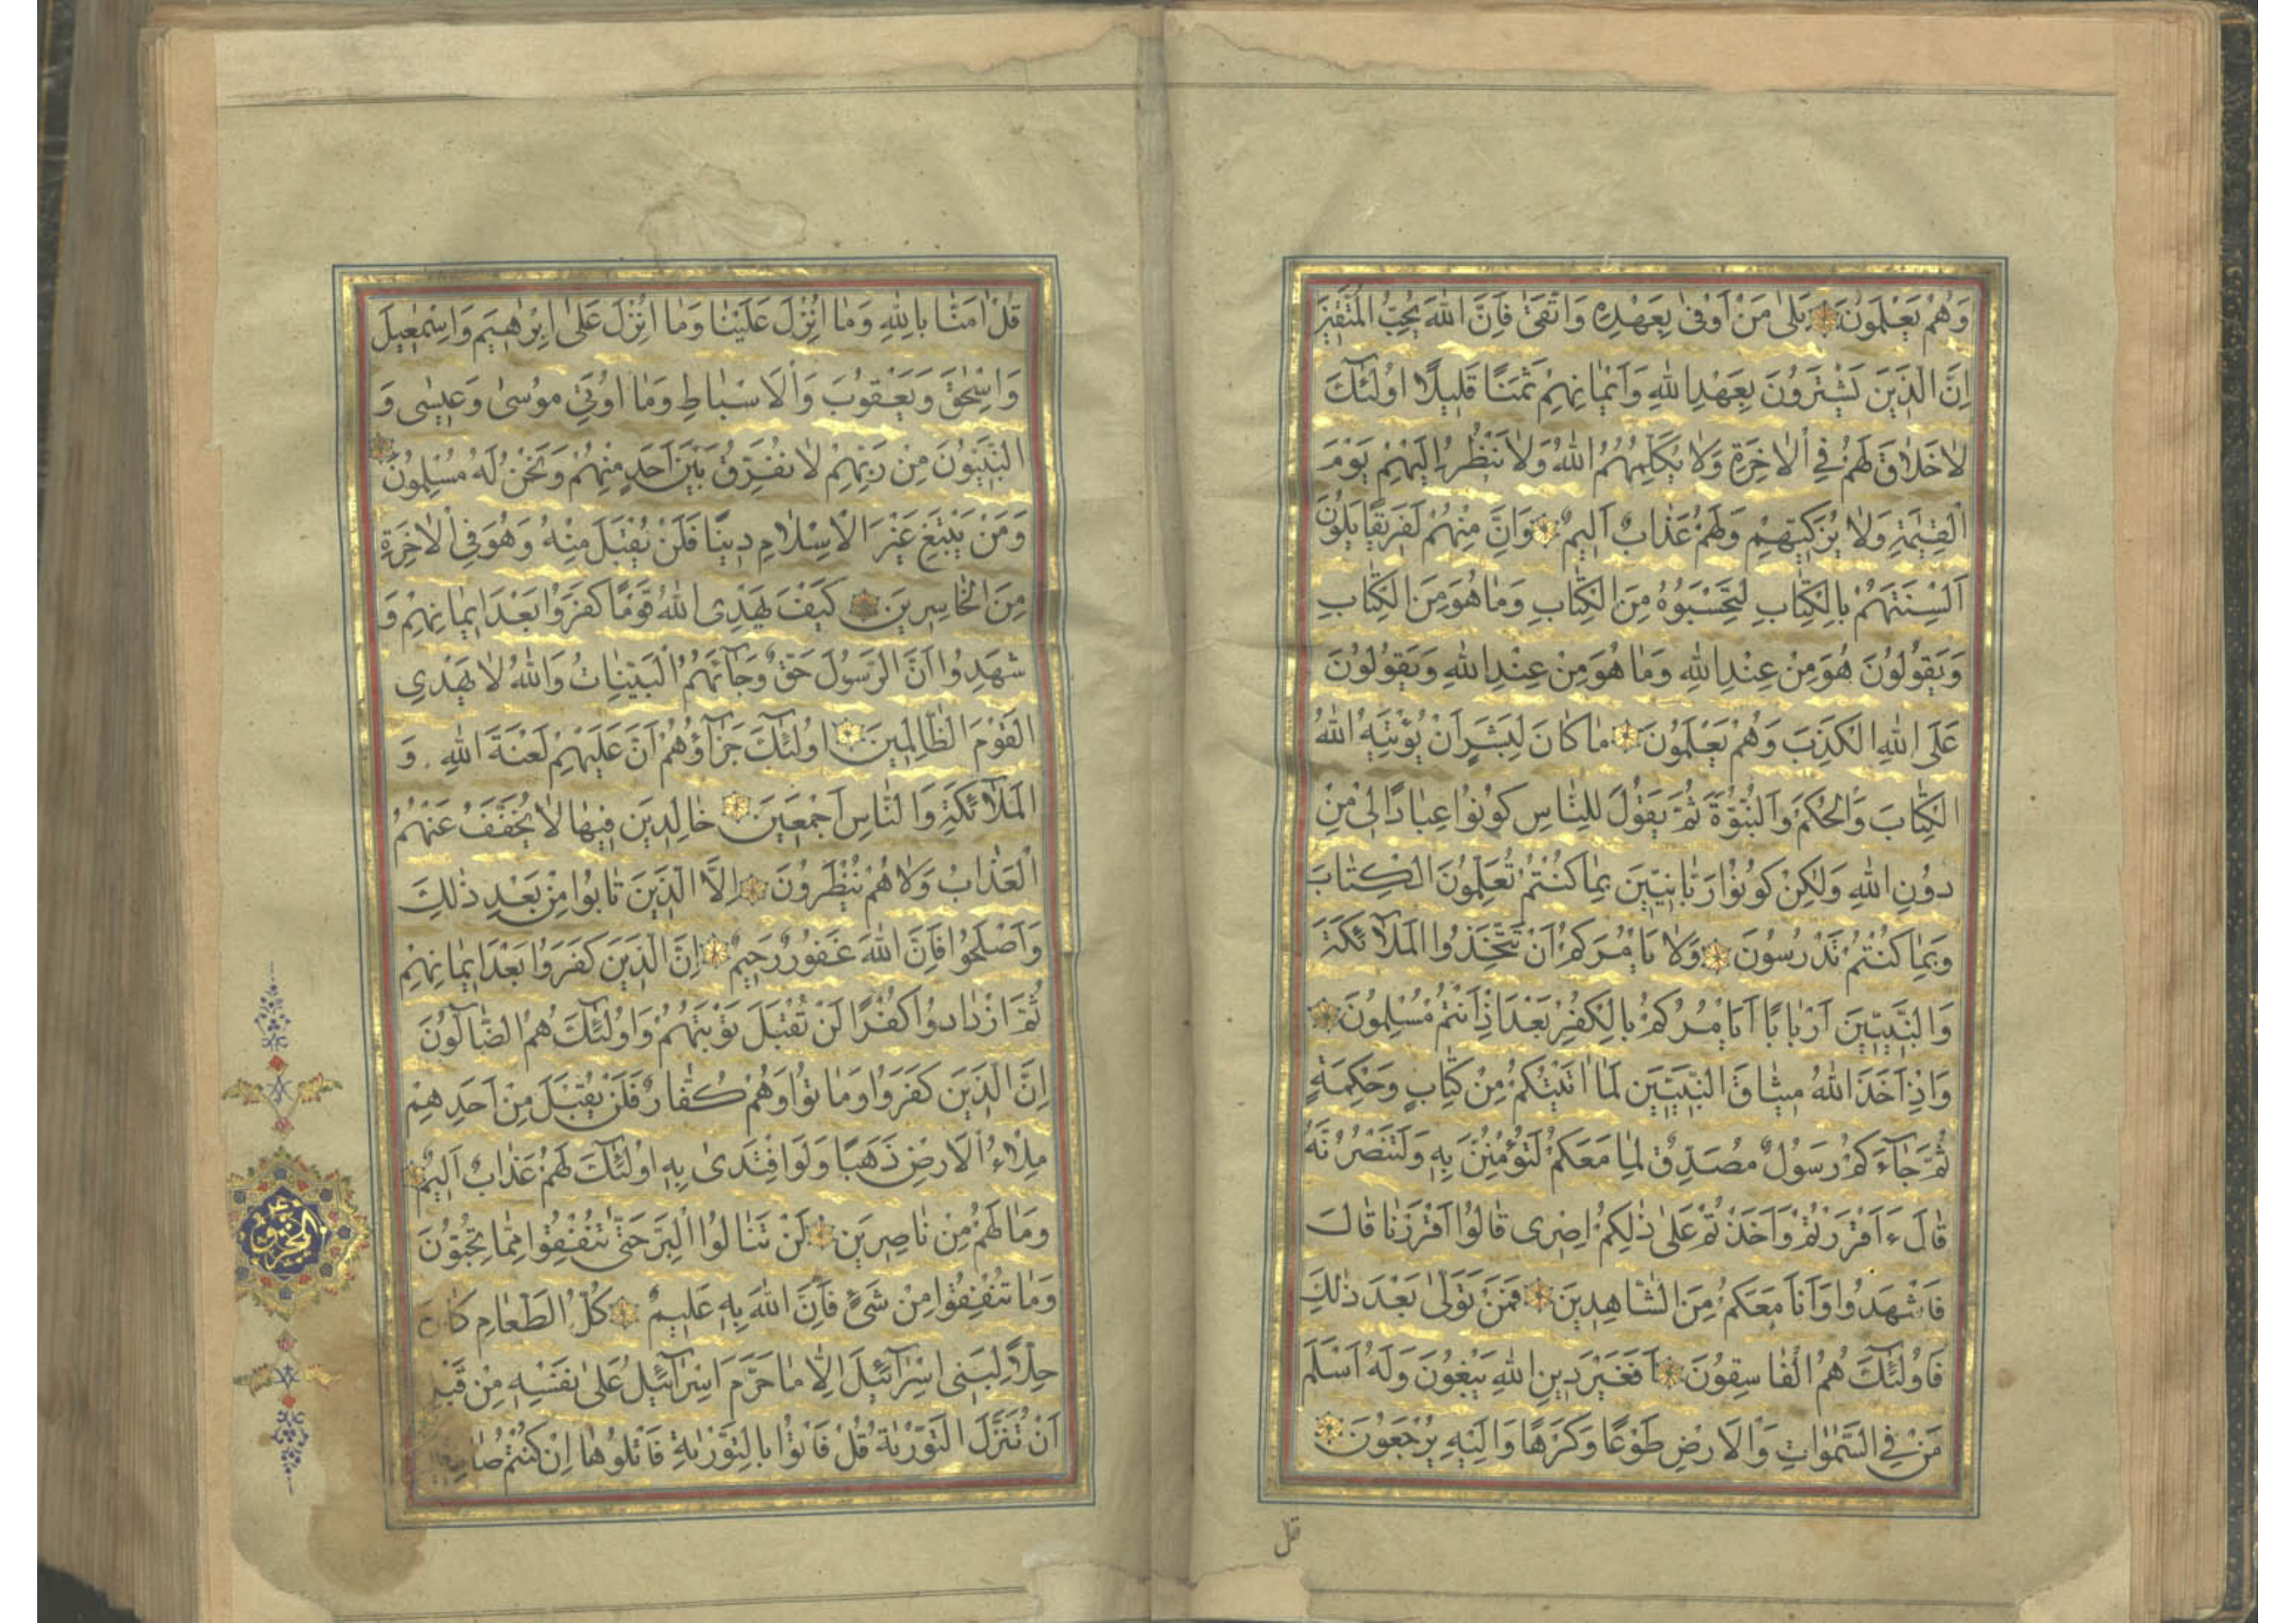 وَهُمْ يَعْلَمُونَ بَلٰى مَنْ اَوْفٰى بِعَهْدِهٖ وَاتَّقٰى فَاِنَّ اللّٰهَ يُحِبُّ الْمُتَّقٖينَ
اِنَّ الَّذٖينَ يَشْتَرُونَ بِعَهْدِ اللّٰهِ وَاَيْمَانِهِمْ ثَمَنًا قَلٖيلًا اُولٰٓئِكَ
لَا خَلَاقَ لَهُمْ فِي الْاٰخِرَةِ وَلَا يُكَلِّمُهُمُ اللّٰهُ وَلَا يَنْظُرُ اِلَيْهِمْ يَوْمَ
الْقِيٰمَةِ وَلَا يُزَكّٖيهِمْ وَلَهُمْ عَذَابٌ اَلٖيمٌ وَاِنَّ مِنْهُمْ لَفَرٖيقًا يَلْوُنَ
اَلْسِنَتَهُمْ بِالْكِتَابِ لِتَحْسَبُوهُ مِنَ الْكِتَابِ وَمَا هُوَ مِنَ الْكِتَابِ
وَيَقُولُونَ هُوَ مِنْ عِنْدِ اللّٰهِ وَمَا هُوَ مِنْ عِنْدِ اللّٰهِ وَيَقُولُونَ
عَلَى اللّٰهِ الْكَذِبَ وَهُمْ يَعْلَمُونَ مَا كَانَ لِبَشَرٍ اَنْ يُؤْتِيَهُ اللّٰهُ
الْكِتَابَ وَالْحُكْمَ وَالنُّبُوَّةَ ثُمَّ يَقُولَ لِلنَّاسِ كُونُوا عِبَادًا لٖى مِنْ
دُونِ اللّٰهِ وَلٰكِنْ كُونُوا رَبَّانِيّٖينَ بِمَا كُنْتُمْ تُعَلِّمُونَ الْكِتَابَ
وَبِمَا كُنْتُمْ تَدْرُسُونَ وَلَا يَاْمُرَكُمْ اَنْ تَتَّخِذُوا الْمَلٰٓئِكَةَ
وَالنَّبِيّٖينَ اَرْبَابًا اَيَاْمُرُكُمْ بِالْكُفْرِ بَعْدَ اِذْ اَنْتُمْ مُسْلِمُونَ
وَاِذْ اَخَذَ اللّٰهُ مٖيثَاقَ النَّبِيّٖينَ لَمَا اٰتَيْتُكُمْ مِنْ كِتَابٍ وَحِكْمَةٍ
ثُمَّ جَآءَكُمْ رَسُولٌ مُصَدِّقٌ لِمَا مَعَكُمْ لَتُؤْمِنُنَّ بِهٖ وَلَتَنْصُرُنَّهُ
قَالَ ءَاَقْرَرْتُمْ وَاَخَذْتُمْ عَلٰى ذٰلِكُمْ اِصْرٖى قَالُوا اَقْرَرْنَا قَالَ
فَاشْهَدُوا وَاَنَا مَعَكُمْ مِنَ الشَّاهِدٖينَ فَمَنْ تَوَلّٰى بَعْدَ ذٰلِكَ
فَاُولٰٓئِكَ هُمُ الْفَاسِقُونَ اَفَغَيْرَ دٖينِ اللّٰهِ يَبْغُونَ وَلَهُ اَسْلَمَ
مَنْ فِي السَّمٰوَاتِ وَالْاَرْضِ طَوْعًا وَكَرْهًا وَاِلَيْهِ يُرْجَعُونَ
قل
قُلْ اٰمَنَّا بِاللّٰهِ وَمَا اُنْزِلَ عَلَيْنَا وَمَا اُنْزِلَ عَلٰى اِبْرٰهٖيمَ وَاِسْمٰعٖيلَ
وَاِسْحٰقَ وَيَعْقُوبَ وَالْاَسْبَاطِ وَمَا اُوتِيَ مُوسٰى وَعٖيسٰى وَ
النَّبِيُّونَ مِنْ رَبِّهِمْ لَا نُفَرِّقُ بَيْنَ اَحَدٍ مِنْهُمْ وَنَحْنُ لَهُ مُسْلِمُونَ
وَمَنْ يَبْتَغِ غَيْرَ الْاِسْلَامِ دٖينًا فَلَنْ يُقْبَلَ مِنْهُ وَهُوَ فِي الْاٰخِرَةِ
مِنَ الْخَاسِرٖينَ كَيْفَ يَهْدِى اللّٰهُ قَوْمًا كَفَرُوا بَعْدَ اٖيمَانِهِمْ وَ
شَهِدُوا اَنَّ الرَّسُولَ حَقٌّ وَجَآءَهُمُ الْبَيِّنَاتُ وَاللّٰهُ لَا يَهْدِي
الْقَوْمَ الظَّالِمٖينَ اُولٰٓئِكَ جَزَآؤُهُمْ اَنَّ عَلَيْهِمْ لَعْنَةَ اللّٰهِ وَ
الْمَلٰٓئِكَةِ وَالنَّاسِ اَجْمَعٖينَ خَالِدٖينَ فٖيهَا لَا يُخَفَّفُ عَنْهُمُ
الْعَذَابُ وَلَا هُمْ يُنْظَرُونَ اِلَّا الَّذٖينَ تَابُوا مِنْ بَعْدِ ذٰلِكَ
وَاَصْلَحُوا فَاِنَّ اللّٰهَ غَفُورٌ رَحٖيمٌ اِنَّ الَّذٖينَ كَفَرُوا بَعْدَ اٖيمَانِهِمْ
ثُمَّ ازْدَادُوا كُفْرًا لَنْ تُقْبَلَ تَوْبَتُهُمْ وَاُولٰٓئِكَ هُمُ الضَّآلُّونَ
اِنَّ الَّذٖينَ كَفَرُوا وَمَاتُوا وَهُمْ كُفَّارٌ فَلَنْ يُقْبَلَ مِنْ اَحَدِهِمْ
مِلْءُ الْاَرْضِ ذَهَبًا وَلَوِ افْتَدٰى بِهٖ اُولٰٓئِكَ لَهُمْ عَذَابٌ اَلٖيمٌ
وَمَا لَهُمْ مِنْ نَاصِرٖينَ لَنْ تَنَالُوا الْبِرَّ حَتّٰى تُنْفِقُوا مِمَّا تُحِبُّونَ
وَمَا تُنْفِقُوا مِنْ شَیْءٍ فَاِنَّ اللّٰهَ بِهٖ عَلٖيمٌ كُلُّ الطَّعَامِ كَانَ
حِلًّا لِبَنٖى اِسْرَآئٖيلَ اِلَّا مَا حَرَّمَ اِسْرَآئٖيلُ عَلٰى نَفْسِهٖ مِنْ قَبْلِ
اَنْ تُنَزَّلَ التَّوْرٰيةُ قُلْ فَاْتُوا بِالتَّوْرٰيةِ فَاتْلُوهَا اِنْ كُنْتُمْ